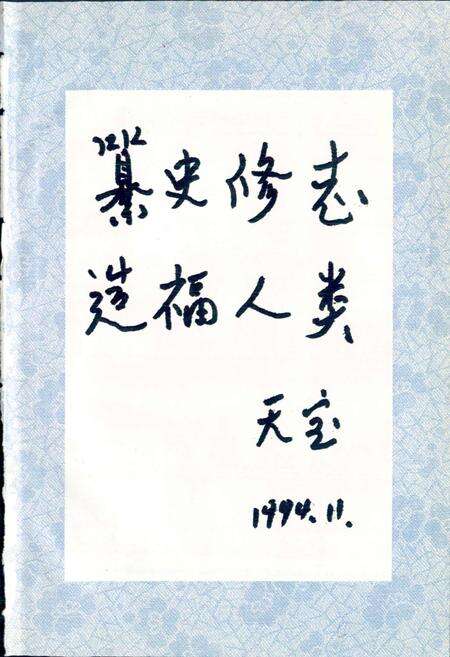 纂史修志
造福人类
天宝
1994.11.